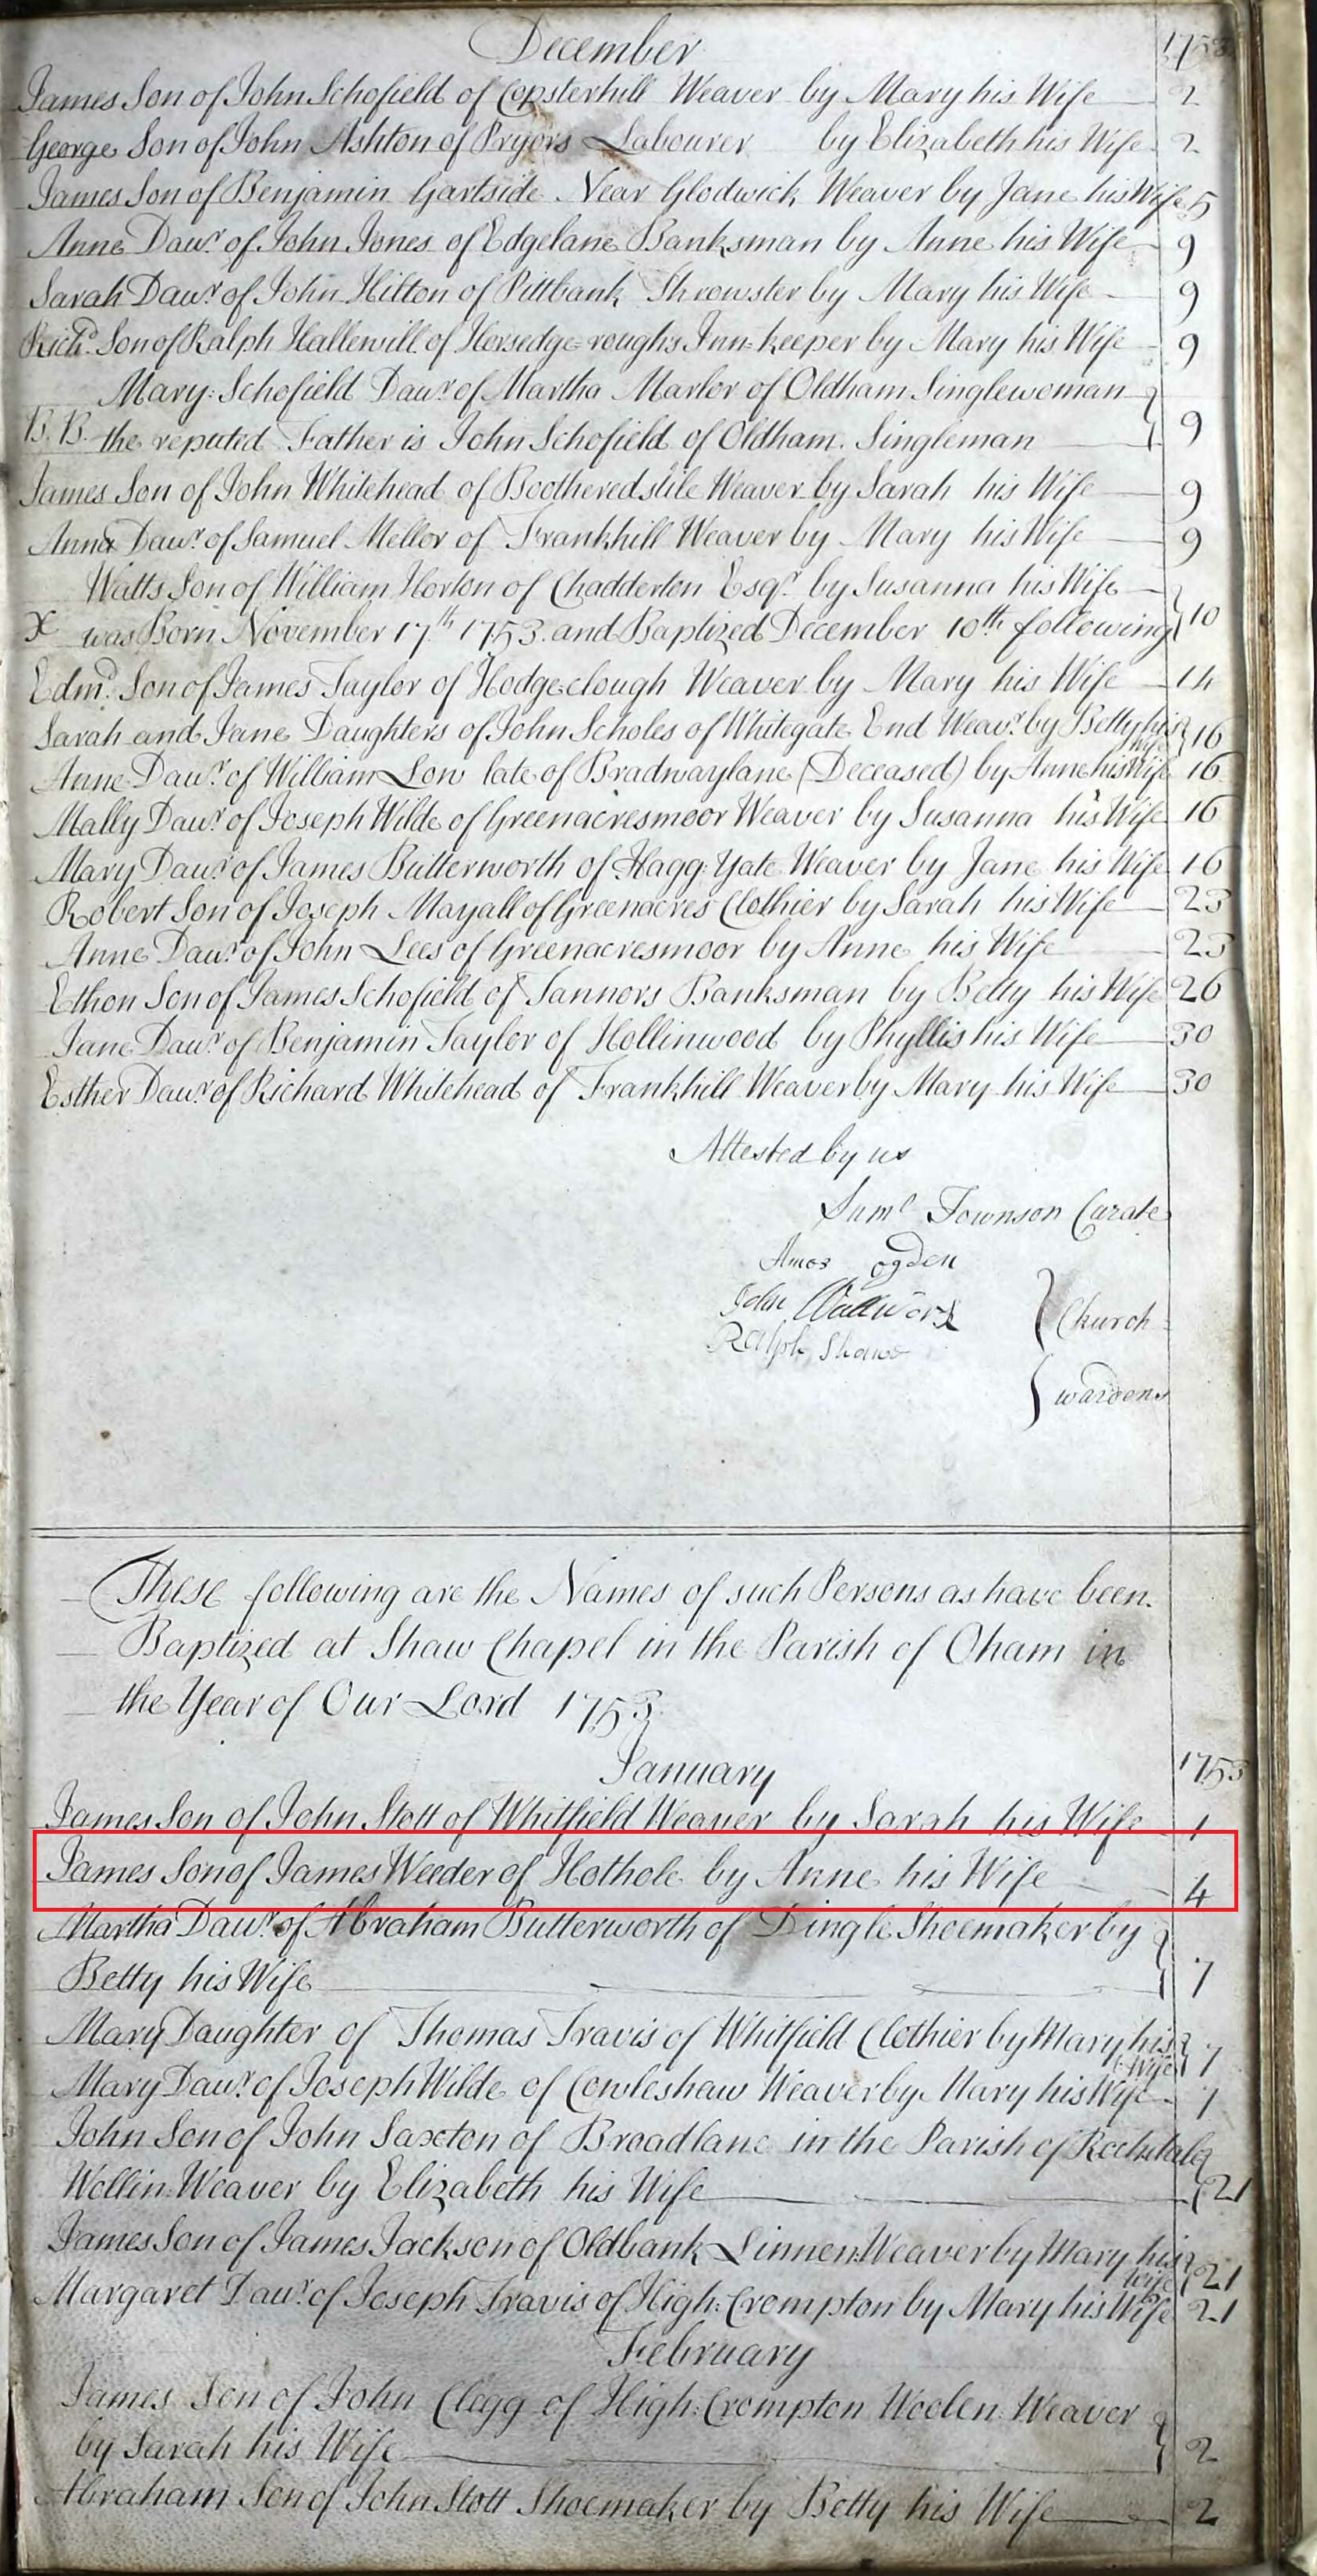 December 1753
James Son of John Schofield of Copsterhill Weaver by Mary his Wife 2
George Son of John Ashton of Pryors Labourer by Elizabeth his Wife 2
James Son of Benjamin Gartside Near Glodwick Weaver by Jane his Wife 5
Anne Dawr. of John Jones of Edgelane Banksman by Anne his Wife 9
Sarah Dawr. of John Hilton of Pittbank Throwster by Mary his Wife 9
Richd. Son of Ralph Hallewill of Horsedge-roughs Inn-keeper by Mary his Wife 9
Mary Schofield Dawr. of Martha Marlor of Oldham Singlewoman
B.B. the reputed Father is John Schofield of Oldham. Singleman 9
James Son of John Whitehead of Bootheredstile Weaver by Sarah his Wife 9
Anna Dawr. of Samuel Mellor of Frankhill Weaver by Mary his Wife 9
Watts Son of William Horton of Chadderton Esqr. by Susanna his Wife
X was Born November 17th 1753. and Baptized December 10th following 10
Edmd. Son of James Taylor of Hodgeclough Weaver by Mary his Wife 14
Sarah and Jane Daughters of John Scholes of Whitegate End Weavr. by Betty his
Wife 16
Anne Dawr. of William Low late of Bradwaylane (Deceased) by Anne his Wife 16
Mally Dawr. of Joseph Wilde of Greenacresmoor Weaver by Susanna his Wife 16
Mary Dawr. of James Butterworth of Hagg-Yate Weaver by Jane his Wife 16
Robert Son of Joseph Mayall of Greenacres Clothier by Sarah his Wife 23
Anne Dawr. of John Lees of Greenacresmoor by Anne his Wife 23
Ethon Son of James Schofield of Tannors Banksman by Betty his Wife 26
Jane Dawr. of Benjamin Taylor of Hollinwood by Phyllis his Wife 30
Esther Dawr. of Richard Whitehead of Frankhill Weaver by Mary his Wife 30
Attested by us
Saml Townson Curate
Amos Ogden
John Wallwork
Ralph Shaw
Church-
wardens
These following are the Names of such Persons as have been
Baptized at Shaw Chapel in the Parish of Oham in
the Year of Our Lord 1753.
January 1753
James Son of John Stott of Whitfield Weaver by Sarah his Wife 1
James Son of James Weeder of Hothole by Anne his Wife 4
Martha Dawr. of Abraham Butterworth of Dingle Shoemaker by
Betty his Wife 7
Mary Daughter of Thomas Travis of Whitfield Clothier by Mary his
Wife 7
Mary Dawr. of Joseph Wilde of Cowleshaw Weaver by Mary his Wife 7
John Son of John Saxton of Broadlane in the Parish of Rochdale
Wollin-Weaver by Elizabeth his Wife 21
James Son of James Jackson of Oldbank Linnen-Weaver by Mary his
Wife 21
Margaret Dawr. of Joseph Travis of High-Crompton by Mary his Wife 21
February
James Son of John Clegg of High-Crompton Woolen Weaver
by Sarah his Wife 2
Abraham Son of John Stott Shoemaker by Betty his Wife 2